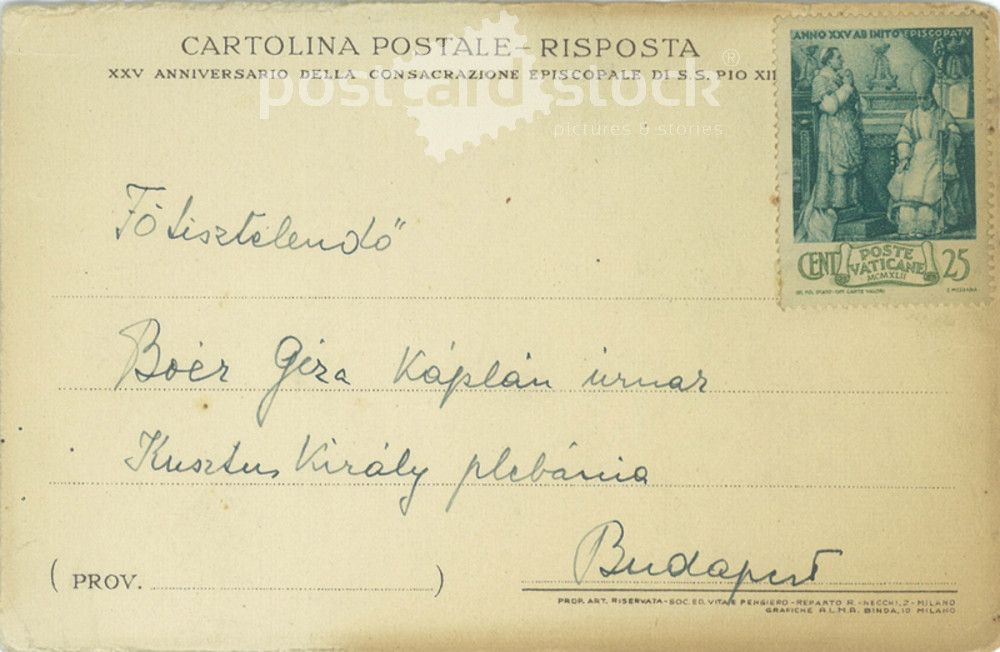 CARTOLINA POSTALE - RISPOSTA
XXV ANNIVERSARIO DELLA CONSACRAZIONE EPISCOPALE DI S.S. PIO XII
postcard stock®
pictures & stories
ANNO XXV AB INITO EPISCOPATV
CENT POSTE VATICANE 25
MCMXLII
Főtisztelendő
Boér Géza Káplán úrnak
Krisztus Király plébánia
Budapest
( PROV. )
PROP. ART. RISERVATA - SOC. ED. VITA E PENSIERO - REPARTO R. - NECCHI, 2 - MILANO
GRAFICHE A.L.M.A. BINDA, 10 MILANO